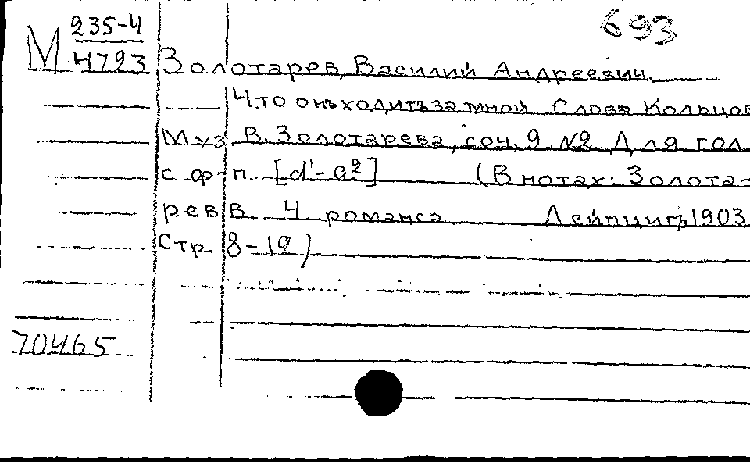 693
М 235-4
4723 Золотарев, Василий Андреевич.
Что он ходит за мной Слова Кольцов
Муз В. Золотарева, соч. 9 №2 Для гол
с ф-п. [d'-a²] (В нотах: Золота-
рев В. 4 романса Лейпциг, 1903
Стр 8-12)
70465